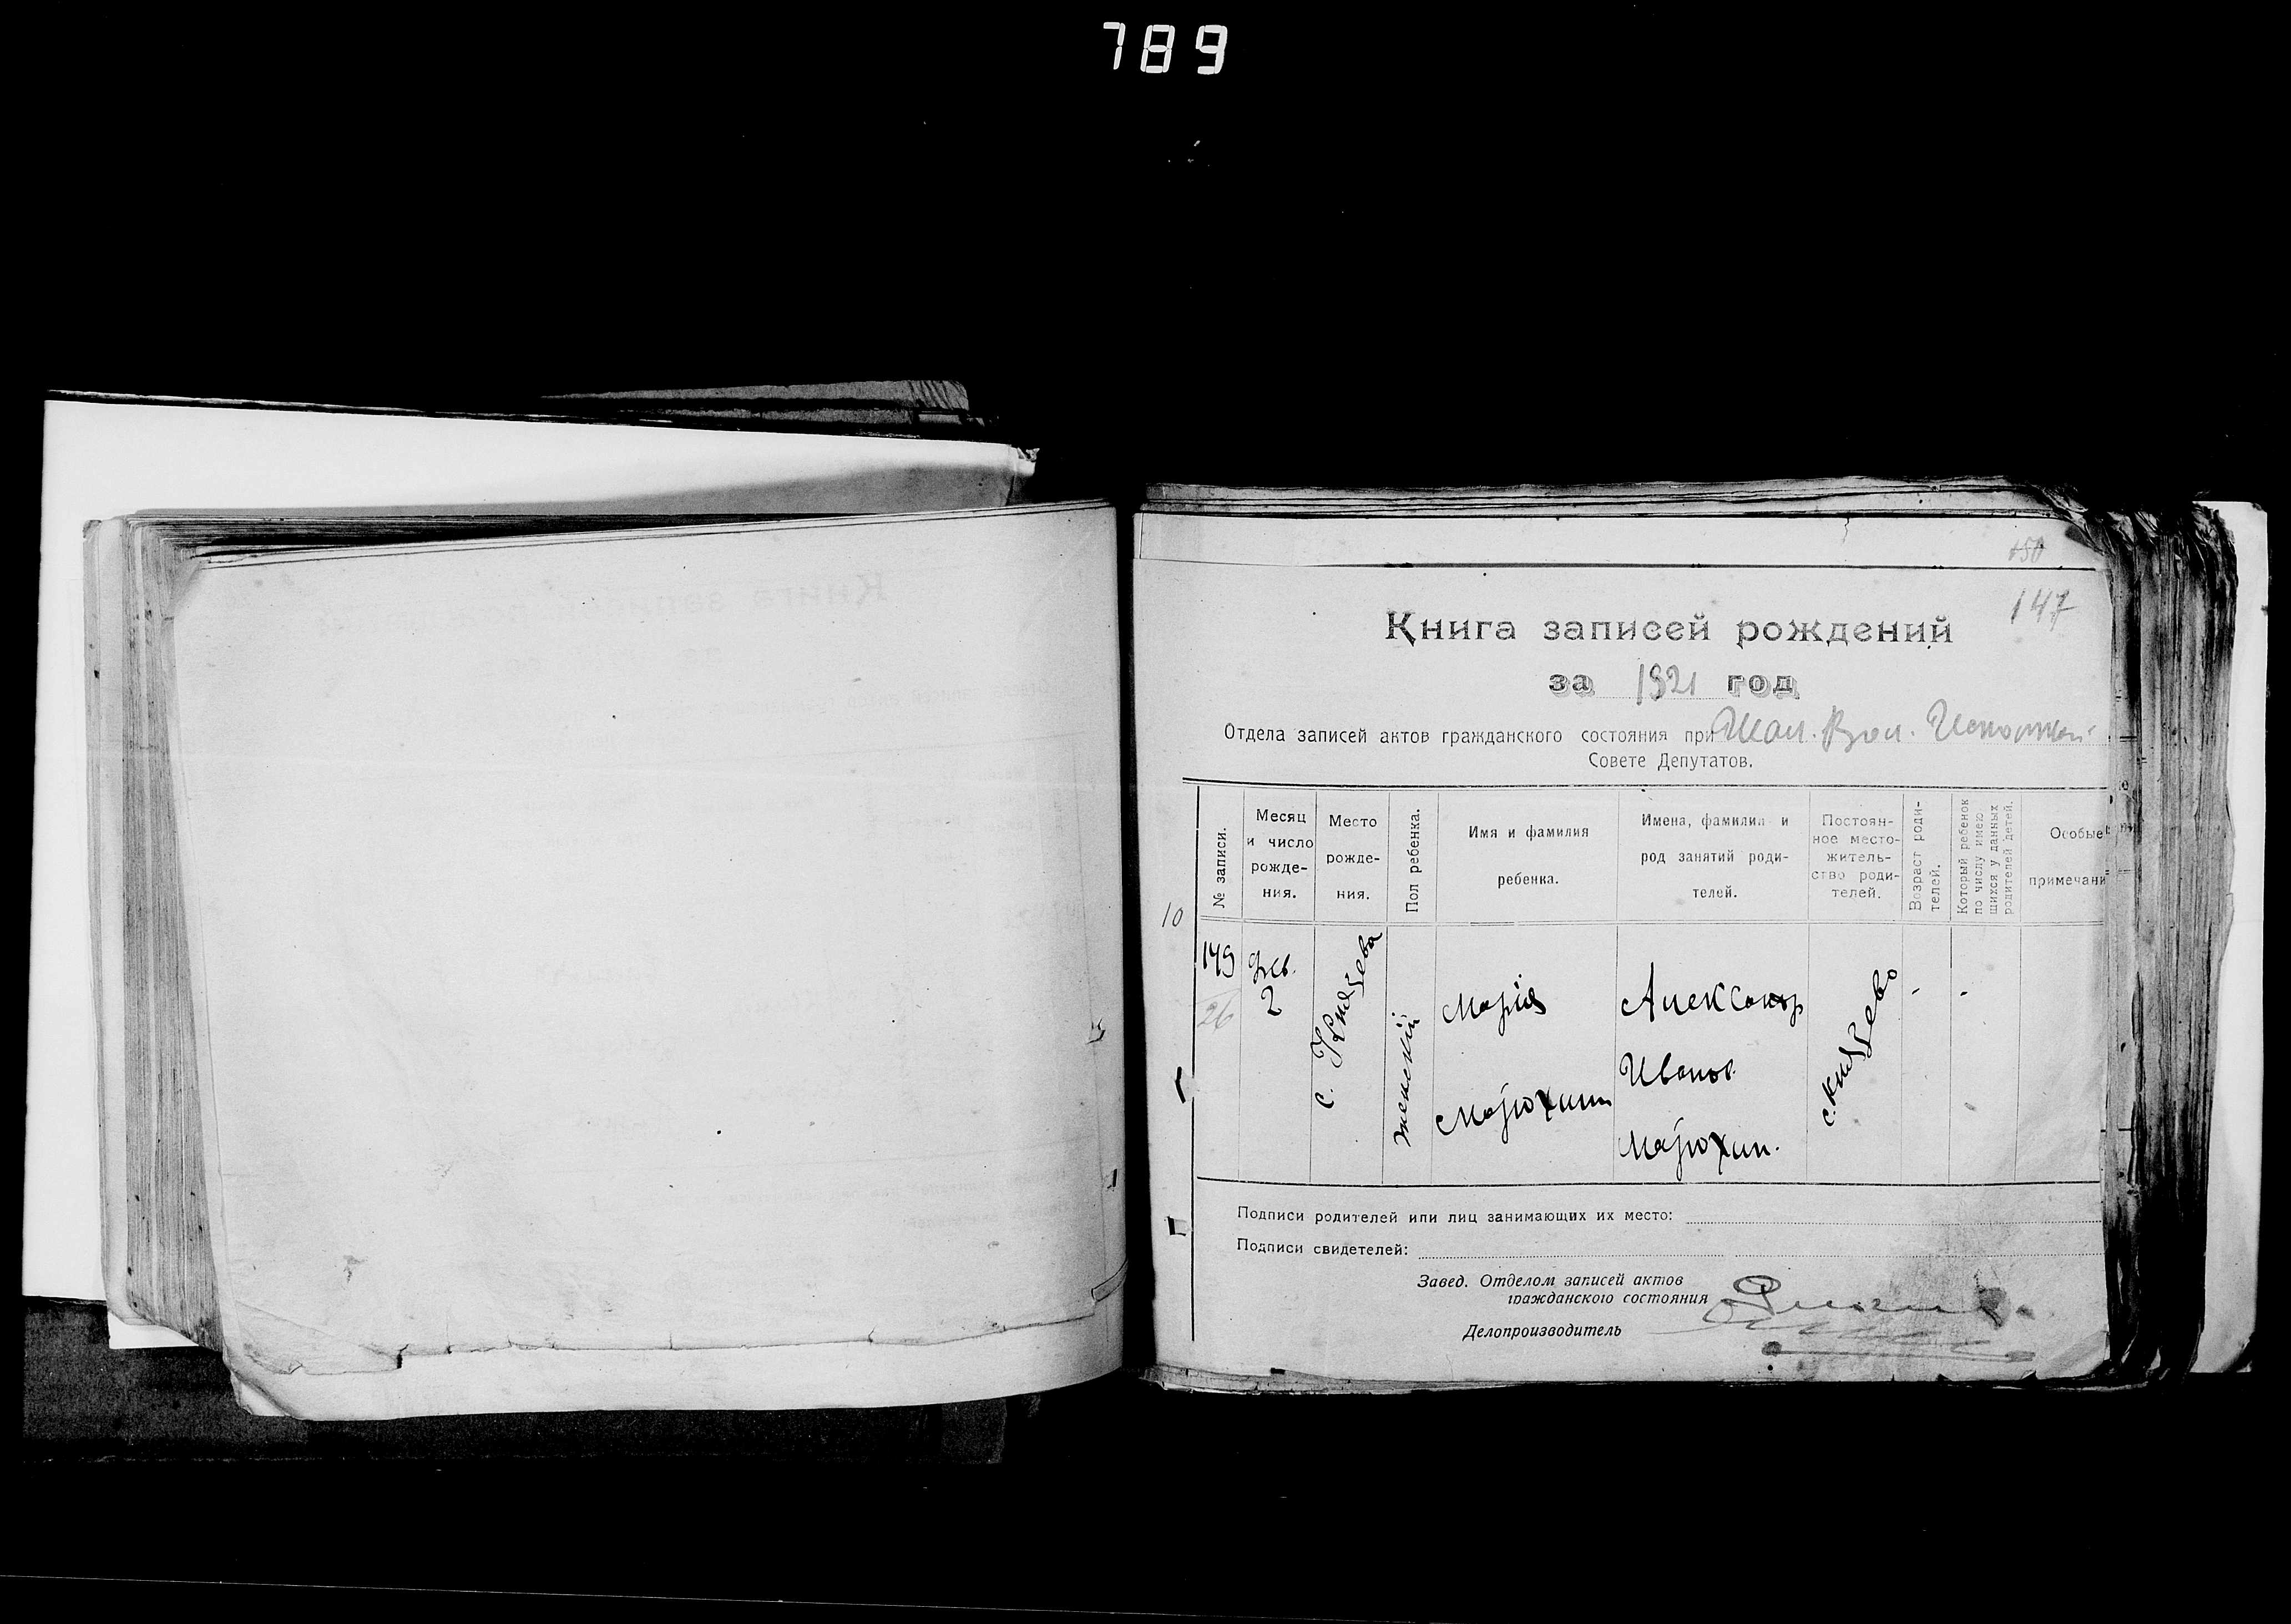 789
150
147
Книга записей рождений
за 1921 год
Отдела записей актов гражданского состояния при Шал. Вол.
Совете Депутатов.
№ записи.
Месяц и число рожде- ния.
Место рожде- ния.
Пол ребенка.
Имя и фамилия ребенка.
Имена, фамилии и род занятий роди- телей.
Постоян- ное место- житель- ство роди- телей.
Возраст роди- телей.
Который ребенок по числу имею щихся у данных родителей детей.
Особые примечани
10
149
26
2
с. Князева
женский
Марія
Александр
Иванов
с. Князево
-
-
Подписи родителей или лиц занимающих их место:
Подписи свидетелей:
Завед. Отделом записей актов
гражданского состояния
Делопроизводитель